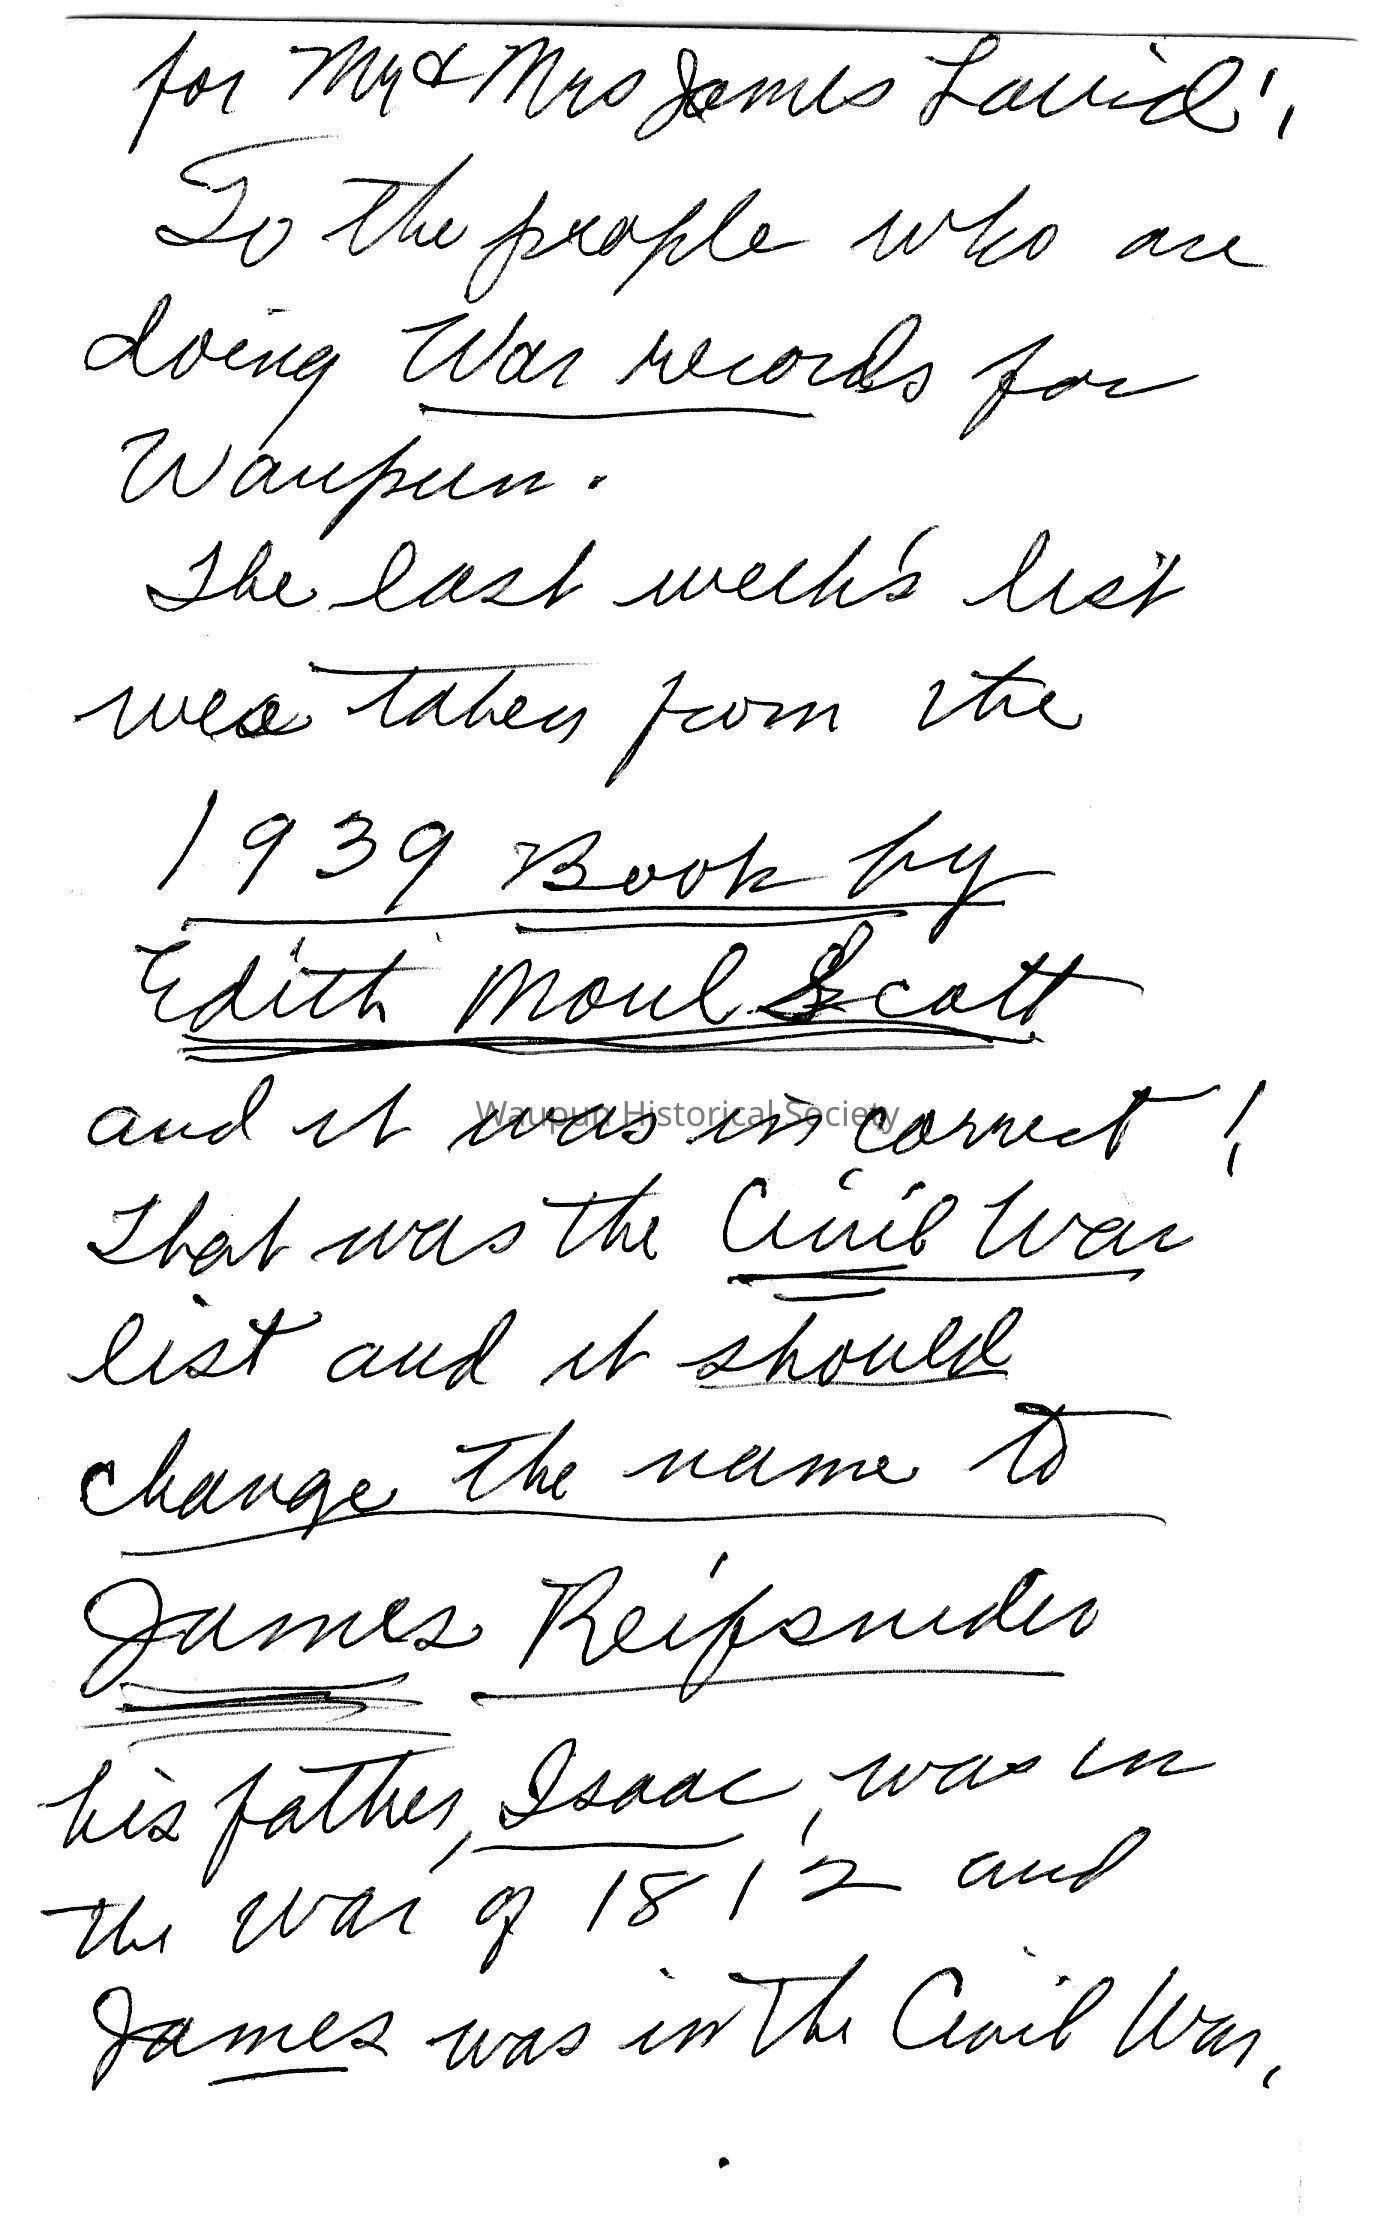 for Mr & Mrs James Laird!,
To the people who are
doing War records for
Waupun.
The last week's list
was taken from the
1939 Book by
Edith Moul Scott
and it was in correct!
Waupun Historical Society
That was the Civil War
list and it should
change the name to
James Reifsnider
his father, Isaac, was in
the War of 1812 and
James was in the Civil War.